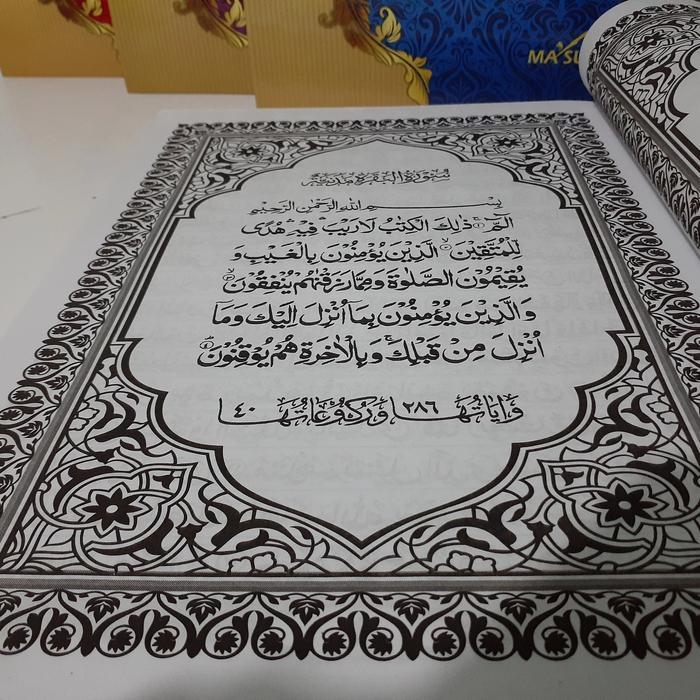 MA'SU
سُوْرَةُ الْبَقَرَةِ مَدَنِيَّةٌ
بِسْمِ اللهِ الرَّحْمٰنِ الرَّحِيْمِ
الٓمّٓ ۚ۝١ ذٰلِكَ الْكِتٰبُ لَا رَيْبَ فِيْهِ ۛ هُدًى
لِّلْمُتَّقِيْنَ ۙ۝٢ الَّذِيْنَ يُؤْمِنُوْنَ بِالْغَيْبِ وَ
يُقِيْمُوْنَ الصَّلٰوةَ وَمِمَّا رَزَقْنٰهُمْ يُنْفِقُوْنَ ۙ۝٣
وَالَّذِيْنَ يُؤْمِنُوْنَ بِمَآ اُنْزِلَ اِلَيْكَ وَمَآ
اُنْزِلَ مِنْ قَبْلِكَ ۚ وَبِالْاٰخِرَةِ هُمْ يُوْقِنُوْنَ ۝٤
وَاٰيَاتُهَا ٢٨٦ وَرُكُوْعَاتُهَا ٤٠